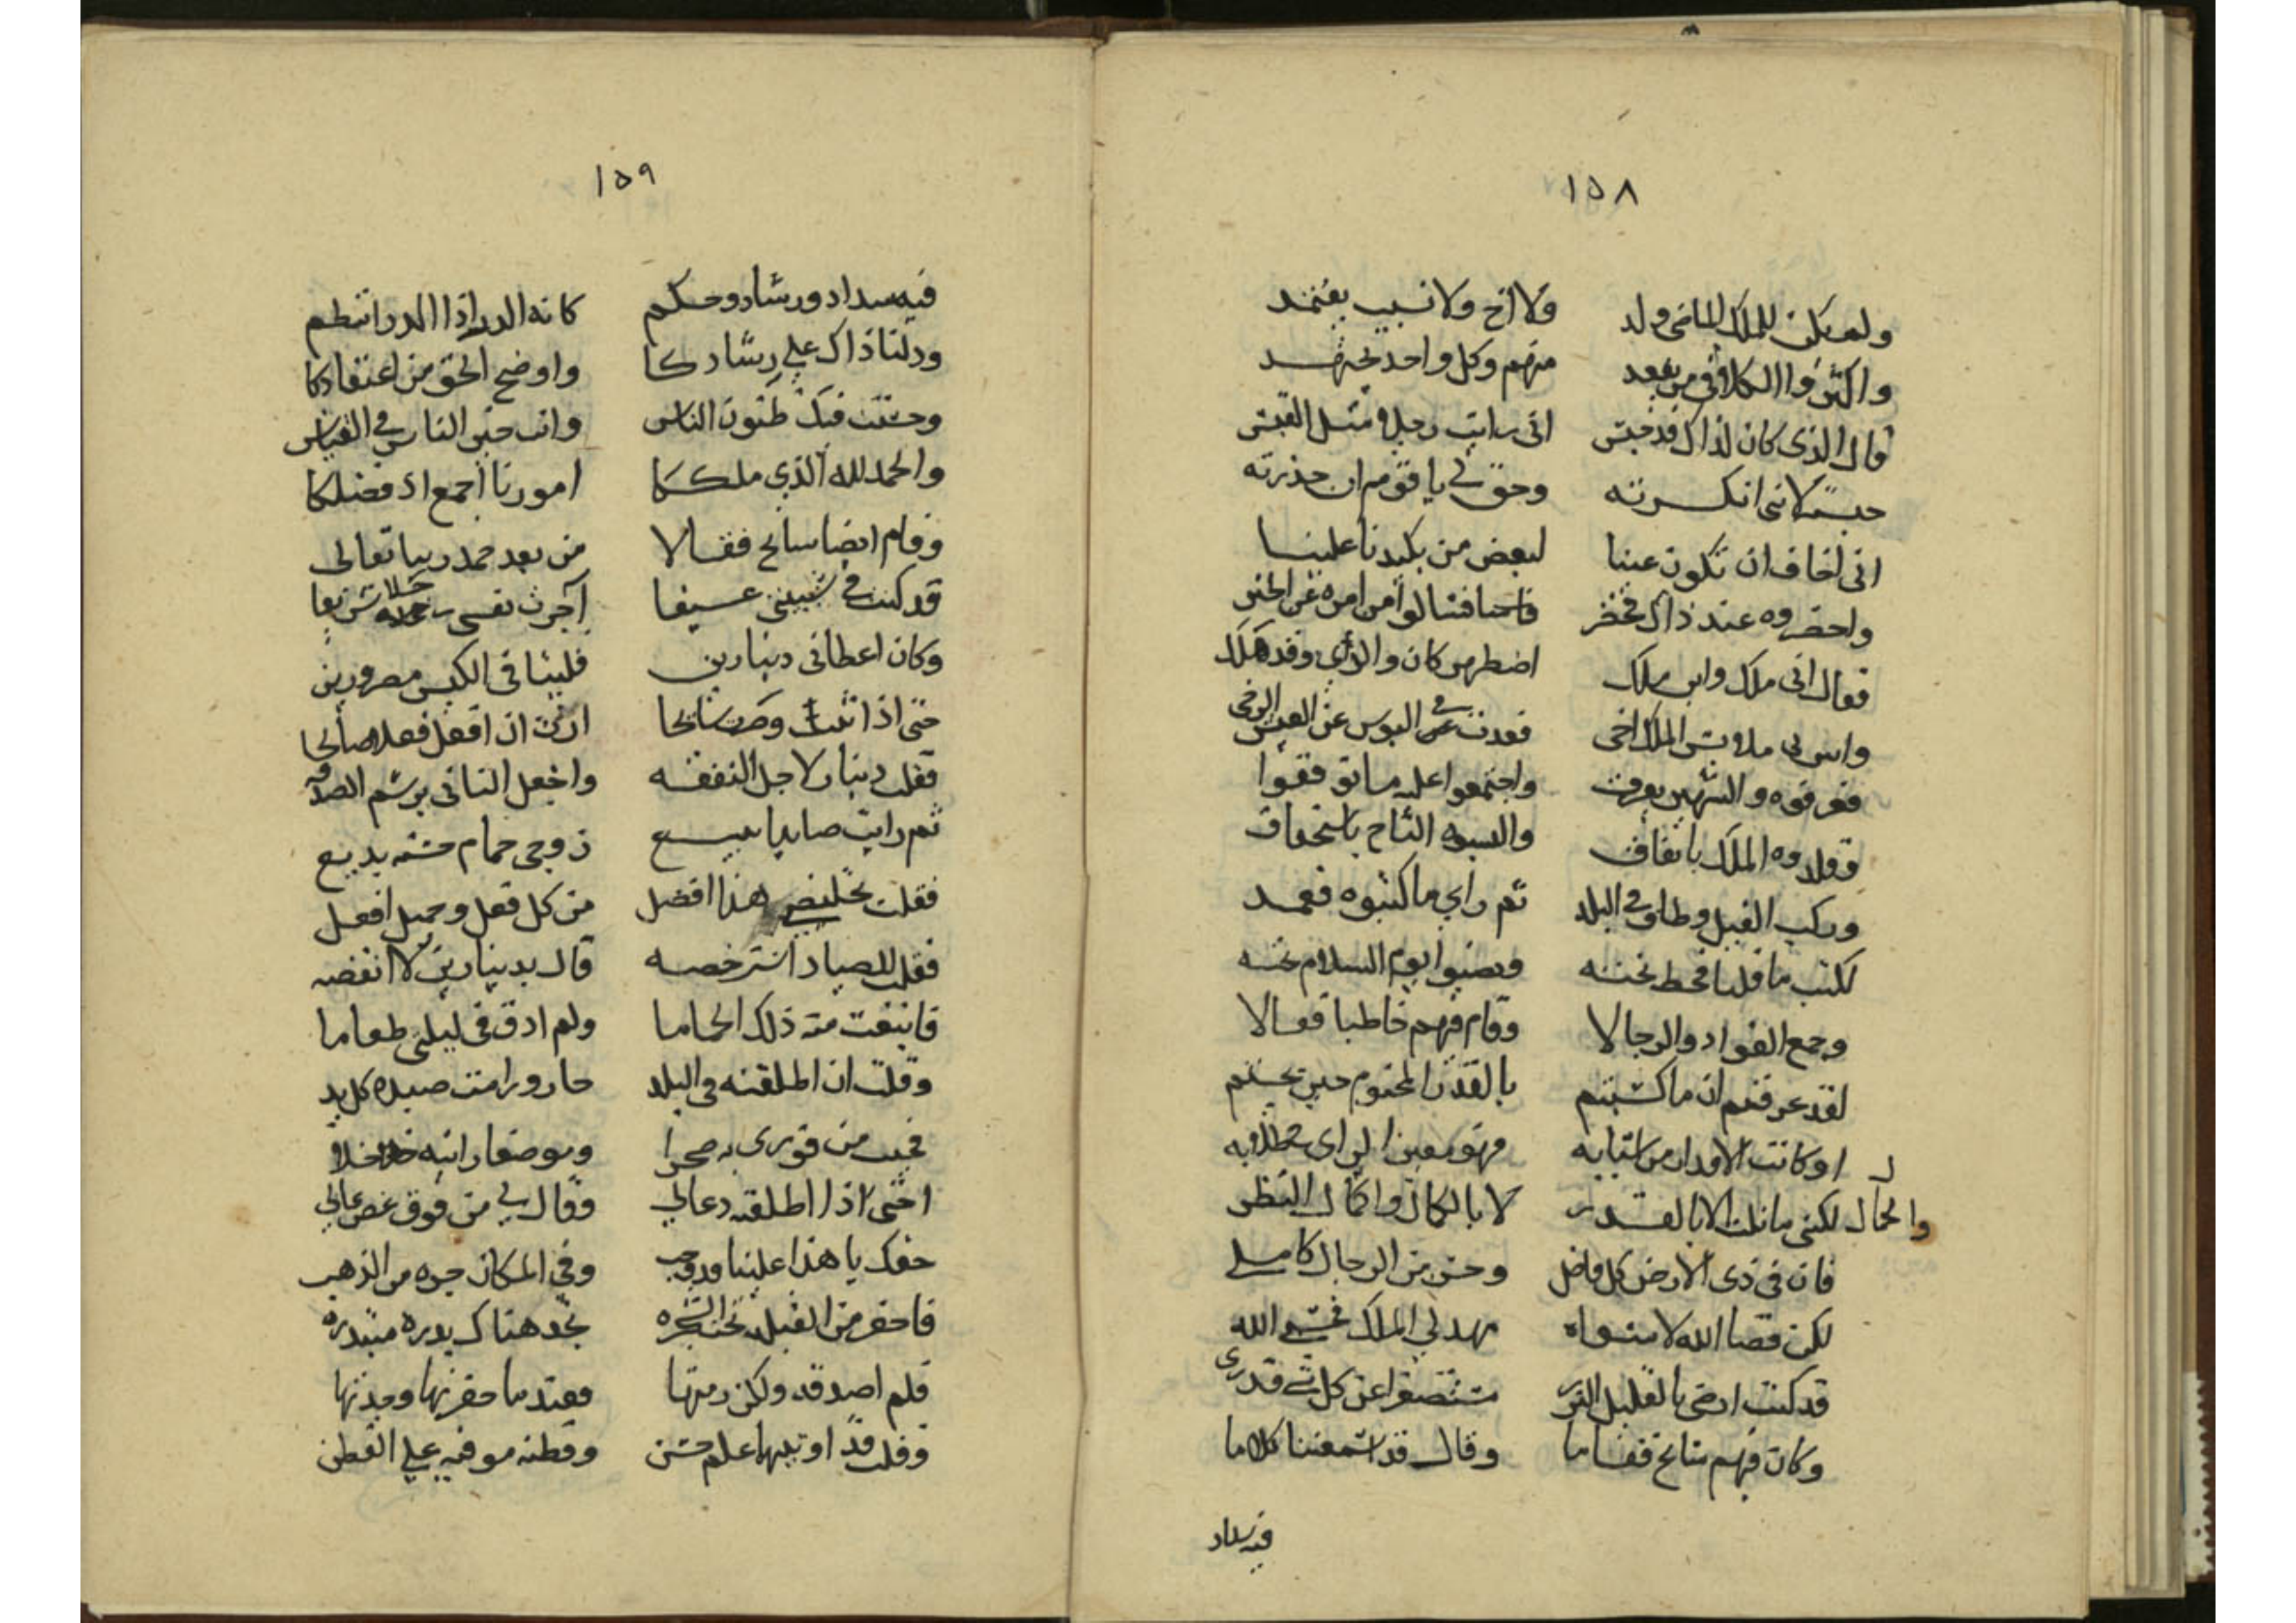 ١٥٨
ولم يكن للملك الماضي ولد ولا اخ ولا نسيب يعتمد
واكثروا الكلام في من يقعد منهم وكل واحد يجتهد
قال الذي كان لذاك قد حبس اني رايت رجلا مثل القبس
حبسته لانني انكرته وحق لي يا قوم ان حذرته
اني اخاف ان تكون عينا لبعض من يكيدنا علينا
واحضروه عند ذاك فحضر فاستنافتالوا من امره عن الخبر
فقال اني ملك وابن ملك اضطر من كان والدي وقد هلك
وابتز لي ملابس الملك اخي فعدت في البوس عن العيش الرخي
فعرفوه والشهير يعرف واجتمعوا عليه ما توقفوا
وقلدوه الملك باتفاق والبسوه التاج باستحقاق
وركب الفيل وطاف في البلد ثم راي ما كتبوه فعمد
لكتب ما قلنا فحط تحته ونصبوا يوم السلام تخته
وجمع القواد والرجالا وقام فيهم خاطبا فقالا
لقد عرفتم ان ما كسبتم بالقدر المحتوم حين جئتم
او كانت الاقدار من اسبابه فهو معين الراي في طلابه
والجمال لكنني ما نلت الا بالقدر لا بالكمال واكمال النظر
فان في ذي الارض كل فاضل وحسن من الرجال كامل
لكن قضا الله لا سواه مهد لي الملك فحسبي الله
قد كنت ارضى بالقليل النزر منتصفا عن كل شي قدري
وكان فيهم سائح فقاما وقال قد اسمعتنا كلاما
فيه سداد
١٥٩
فيه سداد ورشاد وحكم كانه الدر اذا الدر انتظم
ودلنا ذاك علي رشادكا واوضح الحق من اعتقادكا
وحسنت فيك ظنون الناس وانت خير الناس في القياس
والحمد لله الذي ملككا امورنا اجمع اذ فضلكا
وقام ايضا سائح فقالا من بعد حمد ربنا تعالى
قد كنت في شبيبتي عسيفا آجرت نفسي رجلا شريفا
وكان اعطاني دينارين فلبثا في الكيس مصرورين
حتى اذا تبت وصرت سائحا اردت ان افعل فعلا صالحا
فقلت دينار لاجل النفقه واجعل الثاني برسم الصدقه
ثم رايت صايدا يبيع زوجي حمام حسنه بديع
فقلت تخليص هذا افضل من كل فعل وجميل افعل
فقلت للصياد استرخصه قال بدينارين لا انقصه
فابتعت منه ذلك الحماما ولم اذق في ليلتي طعاما
وقلت ان اطلقته في البلد حار ورامت صيده كل يد
فجيت من فوري به صحرا وموضعا رايته خلا
حتى اذا اطلقته دعا لي وقال لي من فوق غصن عالي
حقك يا هذا علينا قد وجب وفي المكان جره من الذهب
فاحفر من القبله تحت الشجره تجد هناك بدره مبتدره
فلم اصدقه ولكن رمتها فعند ما حفرتها وجدتها
وقلت قد اوتيها علم حسن وفطنه موفيه علي الفطن